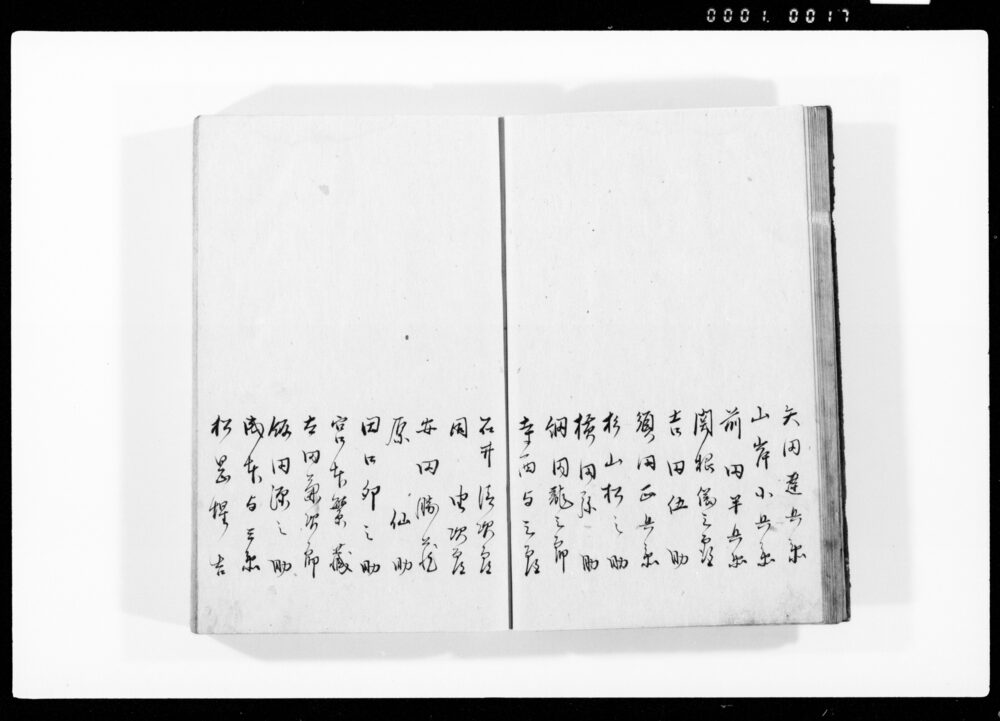 0001. 0017
矢田建兵衛
山岸小兵衛
前田半兵衛
関根儀之露
吉田伍助
須田正兵衛
杉山松之助
横田 助
細田龍之郎
寺西与三郎
石井清次郎
岡 次郎
安田勝蔵
原仙助
田口卯之助
宮本繁蔵
吉田兼次郎
飯田源之助
与三郎
松 吉